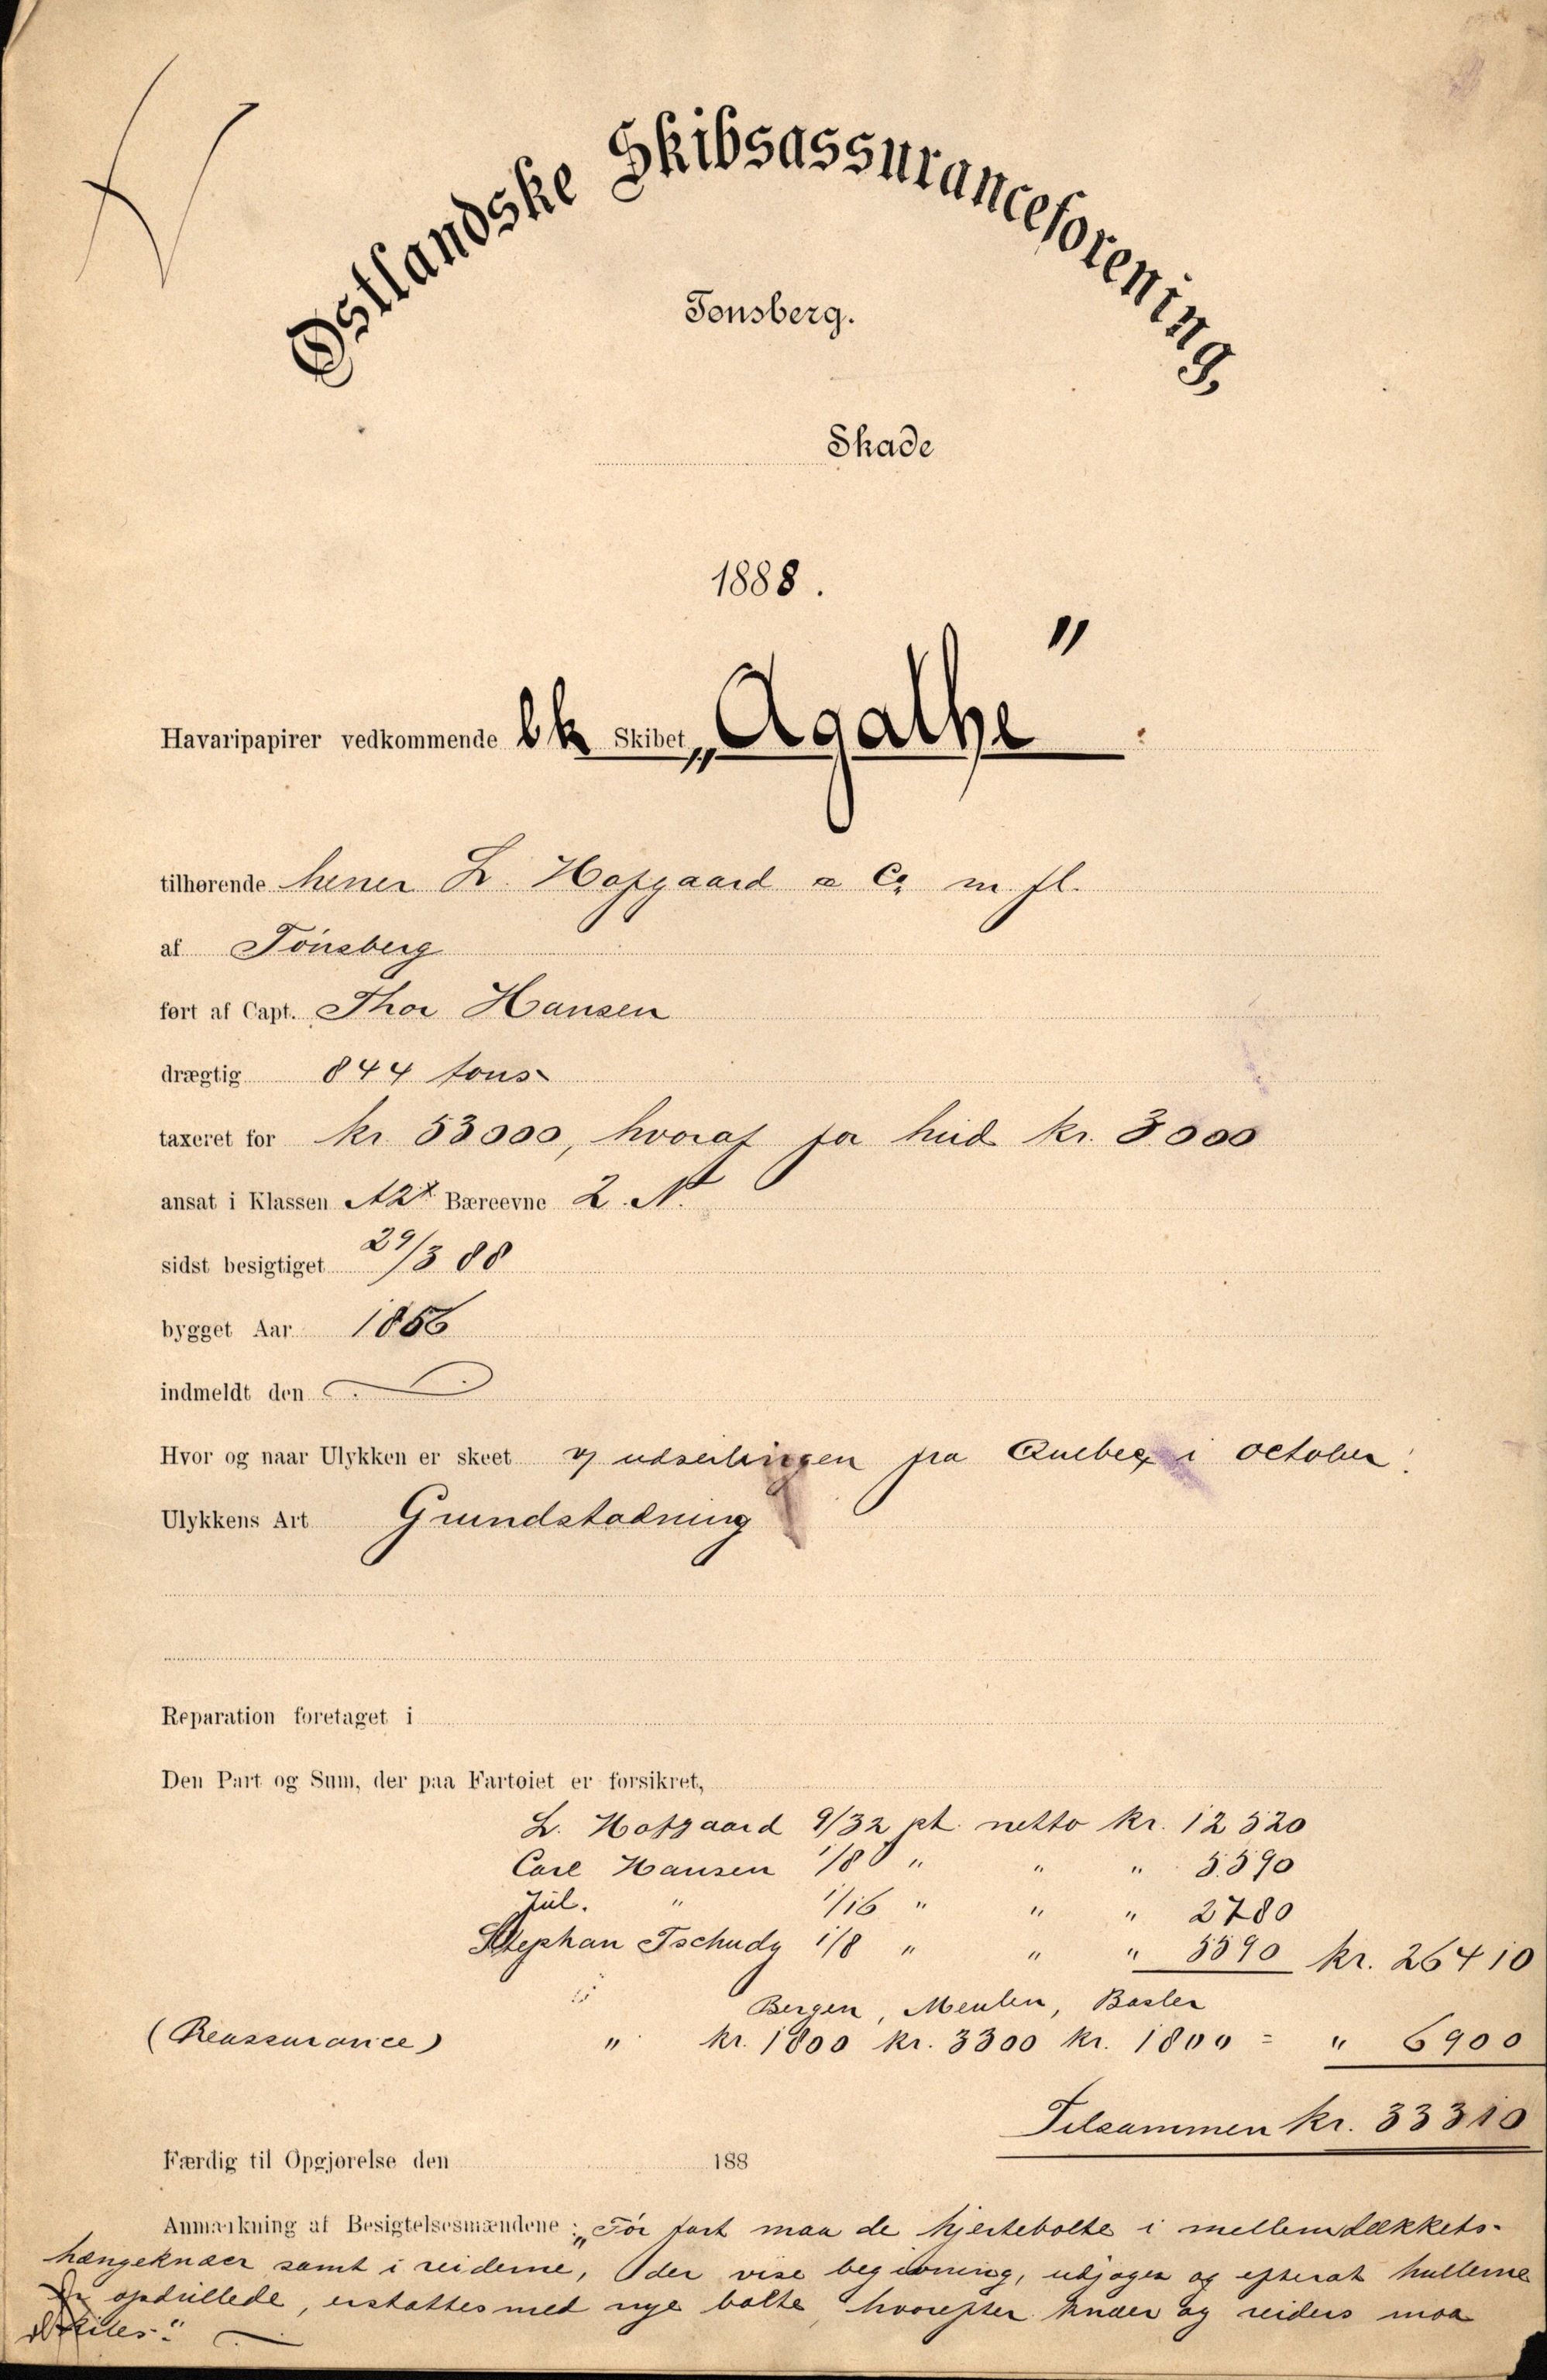 Østlandske Skibsassuranceforening,
Tønsberg.
Skade
1888.
Havaripapirer vedkommende bk Skibet „Agathe"
tilhørende herrer L. Hofgaard & Co m. fl.
af Tönsberg
ført af Capt. Thor Hansen
drægtig 844 tons
taxeret for kr 53000, hvoraf for hud kr. 3000
ansat i Klassen A2x Bæreevne 2. N.
sidst besigtiget 29/3 88
bygget Aar 1856
indmeldt den
Hvor og naar Ulykken er skeet v/ udseilingen fra Quebec i october.
Ulykkens Art Grundstødning
Reparation foretaget i
Den Part og Sum, der paa Fartøiet er forsikret,
L. Hofgaard 9/32 pt. netto kr. 12520
Carl Hansen 1/8 " " " 5590
Jul. " 1/16 " " " 2780
Stephan Tschudy 1/8 " " " 5590 kr. 26410
Bergen, Meulen, Basler
(Reassurance) " kr. 1800 kr. 3300 kr. 1800 = " 6900
Tilsammen kr. 33310
Færdig til Opgjørelse den 188
Anmærkning af Besigtelsesmændene: „Før fart maa de hjertebolte i mellemdækkets-
hængeknæer samt i reiderne, der vise begivning, udjages og efterat hullerne
er opdrillede, erstattes med nye bolte, hvorefter knæer og reiders maa
kiles."